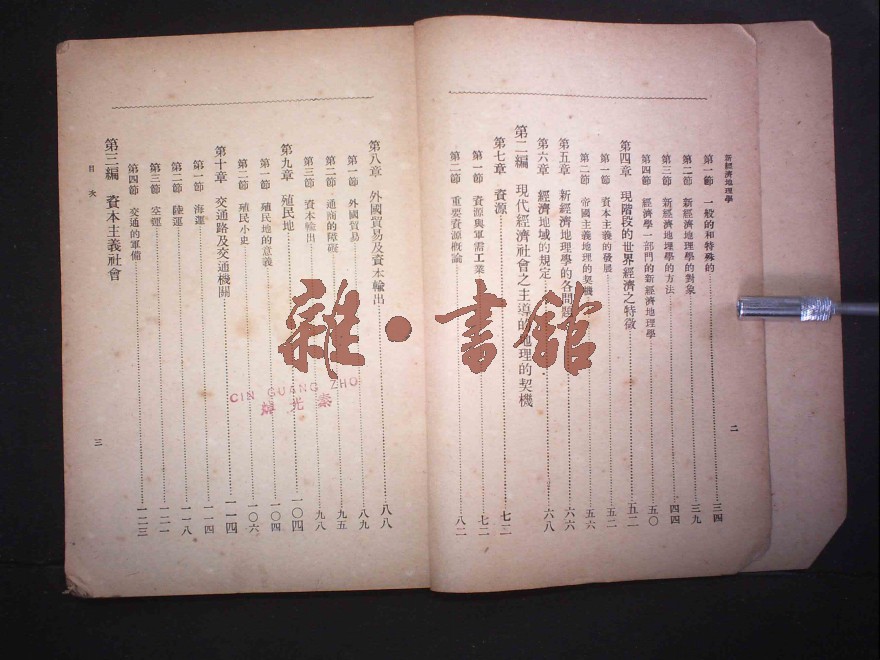 新經濟地理學
第一節 一般的和特殊的 三四
第二節 新經濟地理學的對象 三九
第三節 新經濟地理學的方法 四四
第四節 經濟學一部門的新經濟地理學 五〇
第四章 現階段的世界經濟之特徵 五二
第一節 資本主義的發展 五二
第二節 帝國主義地理的契機 五六
第五章 新經濟地理學的各問題 六六
第六章 經濟地域的規定 六八
第二編 現代經濟社會之主導的地理的契機
第七章 資源 七二
第一節 資源與軍需工業 七二
第二節 重要資源概論 八二
二
第八章 外國貿易及資本輸出 八八
第一節 外國貿易 八九
第二節 通商的障礙 九五
第三節 資本輸出 九八
第九章 殖民地 一〇四
第一節 殖民地的意義 一〇四
第二節 殖民小史 一〇六
第十章 交通路及交通機關 一一四
第一節 海運 一一四
第二節 陸運 一一八
第三節 空運 一二一
第四節 交通的軍備 一二三
第三編 資本主義社會
目次
三
雜·書館
CIN GUANG ZHO
光素